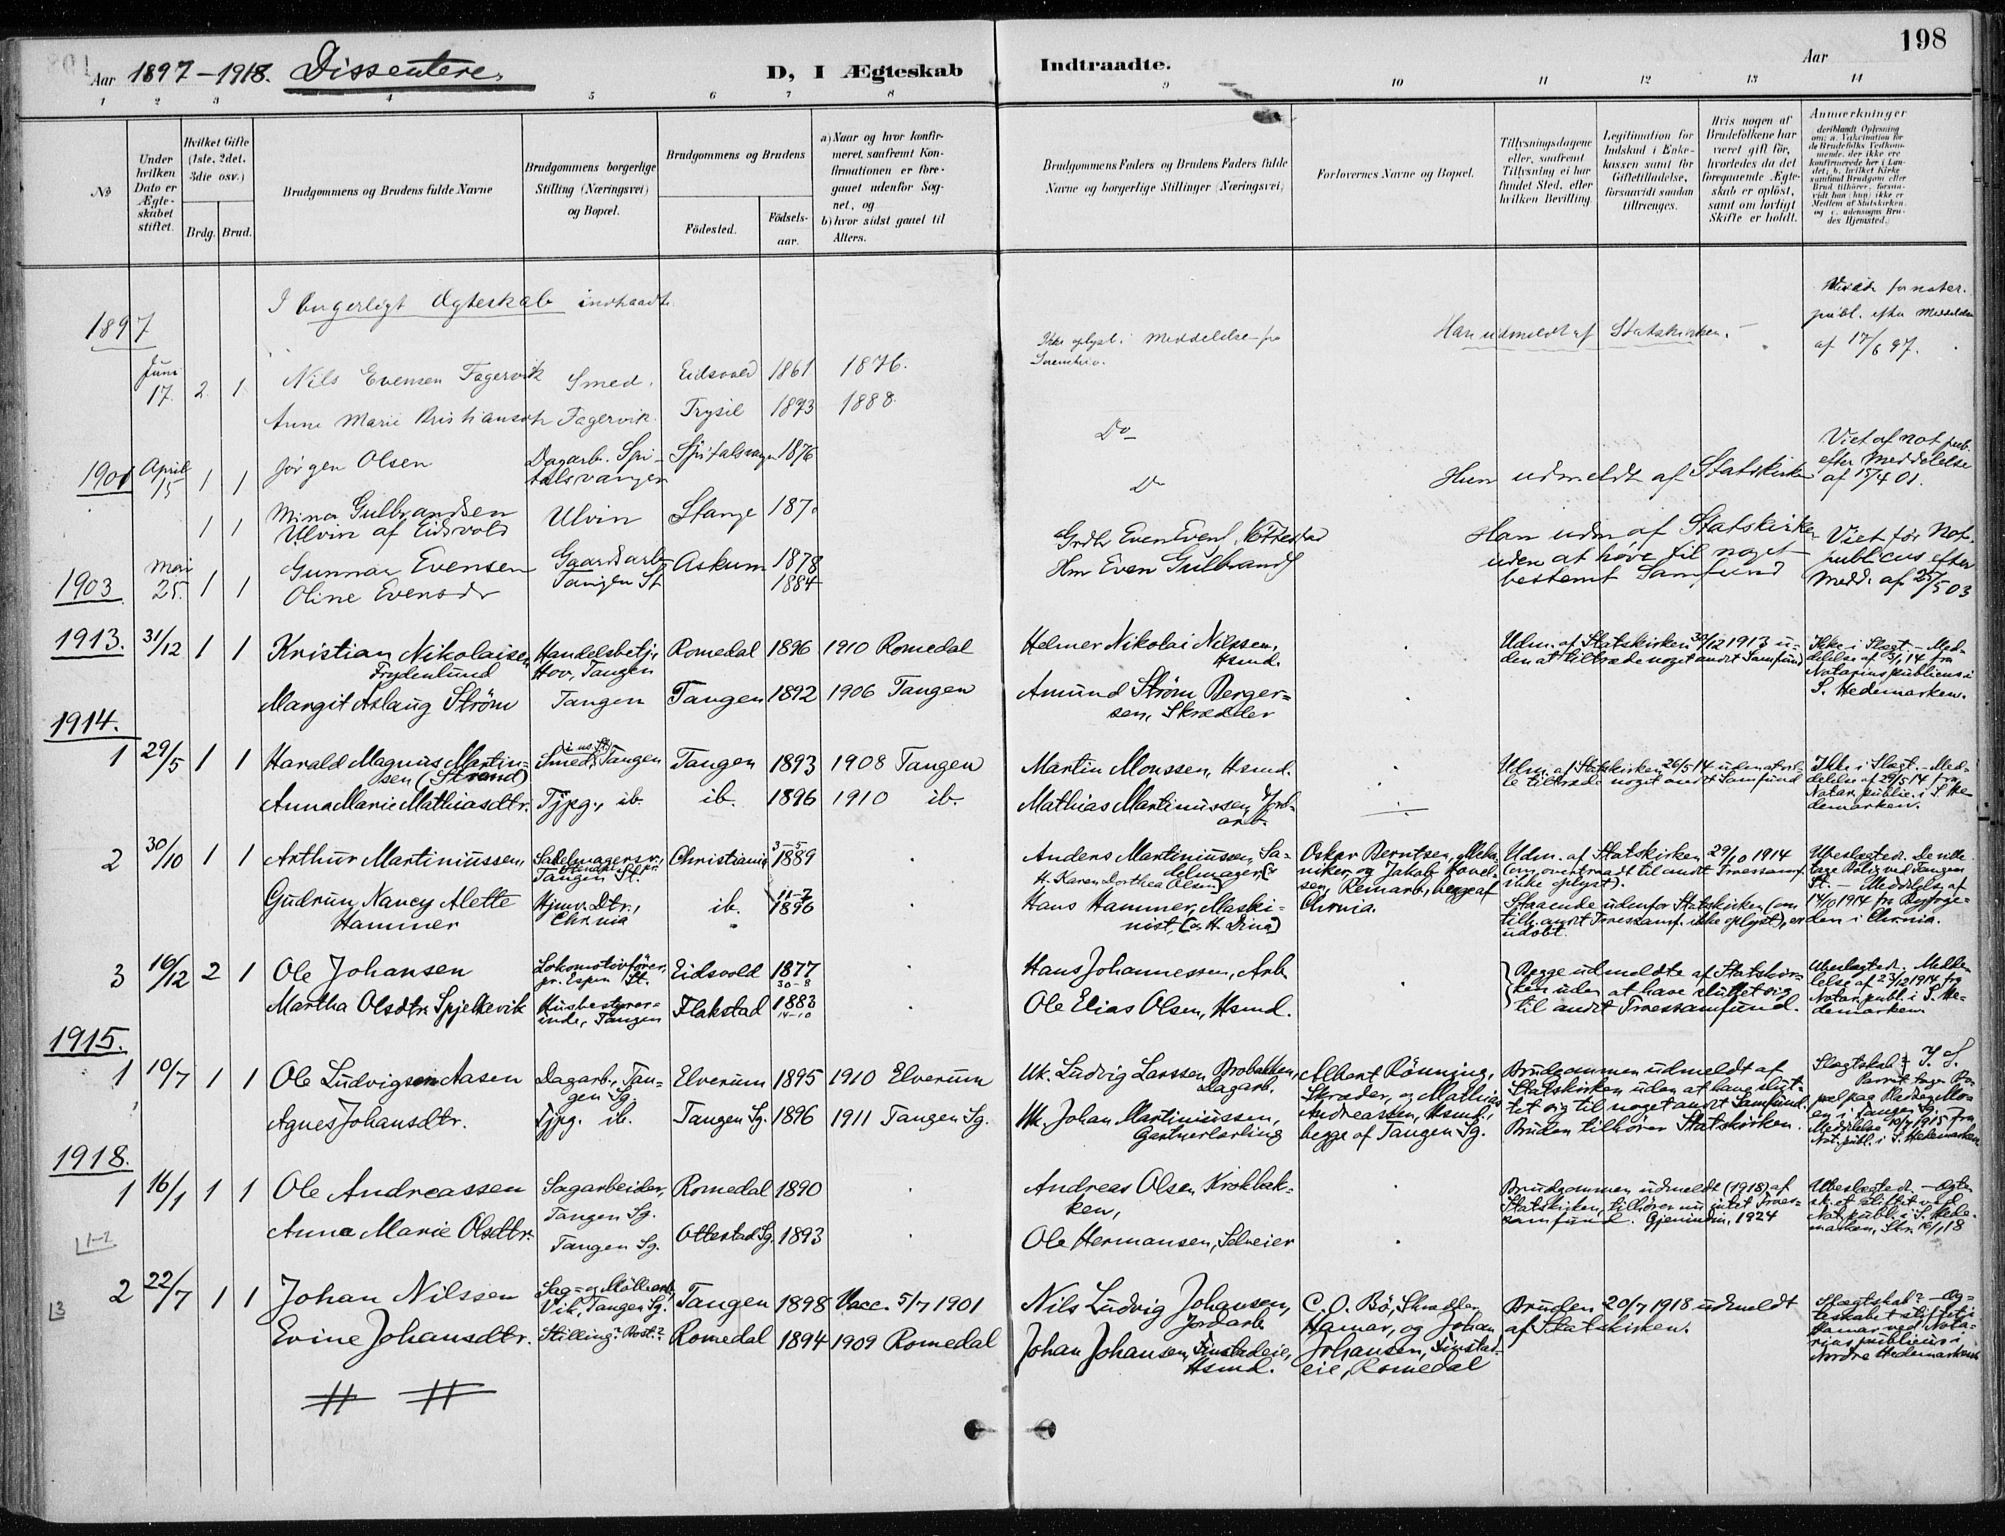 198
Aar 1897-1918. Dissentere.
D, I Ægteskab
Indtraadte.
Aar
1 2 3 4 5 6 7 8 9 10 11 12 13 14
No
Under hvilken Dato er Ægteskabet stiftet.
Hvilket Gifte (1ste, 2det, 3die osv.)
Brdg. Brud.
Brudgommens og Brudens fulde Navne
Brudgommens borgerlige Stilling (Næringsvei) og Bopæl.
Brudgommens og Brudens
Fødested.
Fødselsaar.
a) Naar og hvor konfirmeret, saafremt Konfirmationen er foregaaet udenfor Sognet, og
b) hvor sidst gaaet til Alters.
Brudgommens Faders og Brudens Faders fulde Navne og borgerlige Stillinger (Næringsvei)
Forlovernes Navne og Bopæl.
Tillysningsdagene eller, saafremt Tillysning ei har fundet Sted, efter hvilken Bevilling.
Legitimation for Indskud i Enkekassen samt for Giftetilladelse, forsaavidt saadan tiltrænges.
Hvis nogen af Brudefolkene har været gift før, hvorledes da det foregaaende Ægteskab er opløst, samt om lovligt Skifte er holdt.
Anmærkninger
deriblandt Oplysning om: a. Vakcination for de Brudefolks Vedkommende, der ikke ere konfirmerede her i Landet; b. hvilket Kirkesamfund Brudgom eller Brud tilhører, forsaavidt han (hun) ikke er Medlem af Statskirken, og c. udensogns Brudes Hjemsted.
I borgerligt Ægteskab indtraadte
1897
Juni 17. 2 1 Nils Evensen Fagervik Smed. Eidsvold 1861 1876.
Anne Marie Kristiansdtr Fagervik. Trysil 1873 1888.
Ikke oplyst i Meddelelse fra
Han udmeldt af Statskirken.
for noter. publ. efter Meddelelse af 17/6 97.
1901 April 15 1 1 Jørgen Olsen Dagarb. Spitalsvangen Spitalsvangen 1876
Do
1 1 Mina Gulbrandsen Ulvin af Eidsvold Ulvin Stange
Do
Hun udmeldt af Statskirken
Viet af not. pub. efter Meddelelse af 15/4 01.
1903 Mai 25. 1 1 Gunnar Evensen Gaardsarb Tangen St Askum 1878
Oline Evensdr 1884
Grdbr Even Evens.
Hm Even Gulbrands
Han udm af Statskirken uden at høre til noget bestemt Samfund
Viet for Not. publicus efter Medd. af 25/5 03
1913. 31/12 1 1 Kristian Nikolaisen Frydenlund Handelsbetj. Hov, Tangen Romedal 1896 1910 Romedal
Helmer Nikolai Nilssen, Hsmd.
Udm. af Statskirken 30/12 1913 uden at tiltræde noget andt Samfund
Ikke i Slægt. - Meddelelse af 3/1 14 fra Notarius publicus i S. Hedemarken.
Margit Aslaug Strøm Tangen Tangen 1892 1906 Tangen
Amund Strøm Bergersen, Skrædder
1914.
1 29/5 1 1 Harald Magnus Martinsen (Strand) Smed, Tangen Tangen 1893 1908 Tangen
Martin Monssen, Hsmd.
Udm. af Statskirken 26/5 14 uden at ville tiltræde noget andt Samfund
Ikke i Slægt. - Meddelelse af 29/5 14 fra Notar. public. i S. Hedemarken.
Anna Marie Mathiasdtr. Tjpg., ib. ib. 1896 1910 ib.
Mathias Martinussen, Jordarb.
2 30/10 1 1 Arthur Martiniussen, Sadelmagersv., Tangen St. Christiania 3-5 1889
Anders Martiniussen, Sadelmager (& H. Karen Dorthea Olsen)
Oskar Berntsen, Mekaniker, og Jakob Havelsen, Remarb., begge af Chrnia.
Udm. af Statskirken 29/10 1914 (om overtraadt til andt Troessamf. ikke oplyst).
Ubeslægted. De vilde tage Bolig ved Tangen St. - Meddelelse af 14/10 1914 fra Byfogeden i Chrnia.
Gudrun Nancy Alette Hammer Hjmv. Dtr., Chrnia ib. 11-7 1896
Hans Hammer, Maskinist, (& H. Lina)
Staaende udenfor Statskirken (om tilh. andt Troessamf. ikke oplyst), er udøbt.
3 16/12 2 1 Ole Johansen Lokomotivfører, pr. Espn St. Eidsvold 1877 30-8
Hans Johannessen, Arb
Begge udmeldte af Statskirken uden at have sluttet sig til andt Troessamfund.
Ubeslægted. Meddelelse af 23/12 1914 fra Notar. publ. i S. Hedemarken.
Martha Olsdtr. Spjelkevik Husbestyrerinde, Tangen Flakstad 1883 14-10
Ole Elias Olsen, Hsmd.
1915.
1 10/7 1 1 Ole Ludvigsen Aasen Dagarb., Tangen Sg. Elverum 1895 1910 Elverum
Uk. Ludvig Larssen Brobakken, Dagarb.
Albert Rønning, Skræder, og Mathias Andreassen, Hsmd., begge af Tangen Sg.
Brudgommen udmeldt af Statskirken uden at have sluttet sig til noget andt Samfund. Bruden tilhører Statskirken.
Slægtskab
Parret tager Bopæl paa Moen i Tangen Sg. Meddelelse 10/7 1915 fra Not. publ. i S. Hedemarken
Agnes Johansdtr. Tjpg. ib. Tangen Sg. 1896 1911 Tangen Sg.
Uk. Johan Martiniussen, Gartnerlærling
1918.
1 16/1 1 1 Ole Andreassen Sagarbeider, Tangen Sg. Romedal 1890
Andreas Olsen Krokbakken,
Brudgommen udmeldt (1918) af Statskirken, tilhører nu intet Troessamfund. Gjenindm. 1924
Ubeslægted. - Ægtesk. et stiftet ved Not. publ. i S. Hedemarken, Skr. 16/1 18
1-2
Anna Marie Olsdtr. Tangen Sg. Ottestad Sg. 1893
Ole Hermansen, Selveier
2 22/7 1 1 Johan Nilssen Sag- og Møllearb., Vik, Tangen Sg. Tangen 1898 Vacc. 5/7 1901
Nils Ludvig Johansen, Jordarb
C. O. Bø, Skrædder Hamar, og Johan Johansen, Finstadeie, Romedal
Bruden 20/7 1918 udmeldt af Statskirken.
Slægtskab? - Ægteskabet stiftet i Hamar ved Notarius publicus i Nordre Hedemarken
13
Evine Johansdtr. Stilling? Bost? Romedal 1894 1909 Romedal
Johan Johansen, Finstadeie, Hsmd.